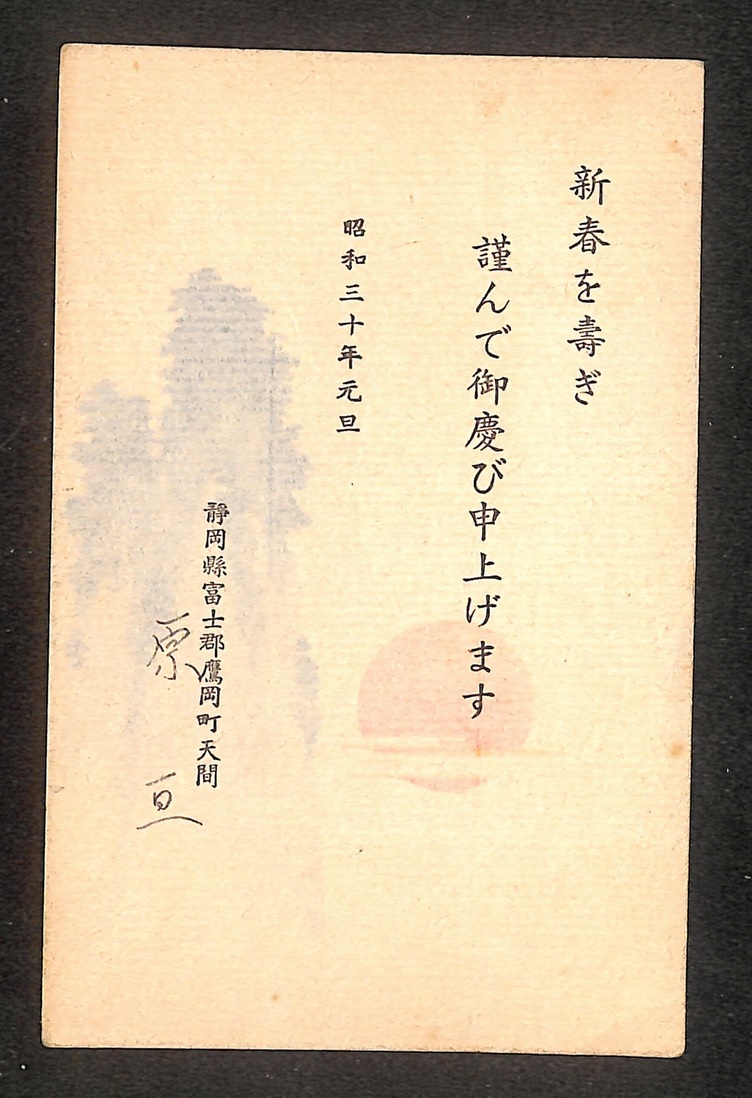 新春を壽ぎ
謹んで御慶び申上げます
昭和三十年元旦
靜岡縣富士郡鷹岡町天間
原 亘